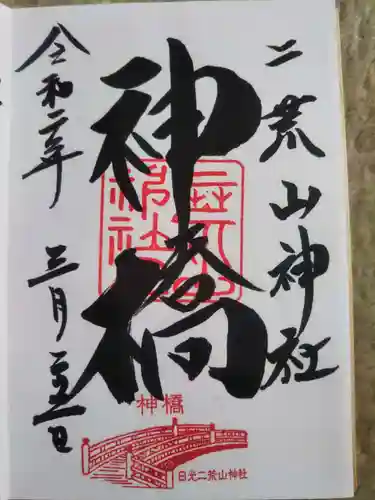 二荒山神社
神橋
令和二年
三月二十五日
神橋
日光二荒山神社